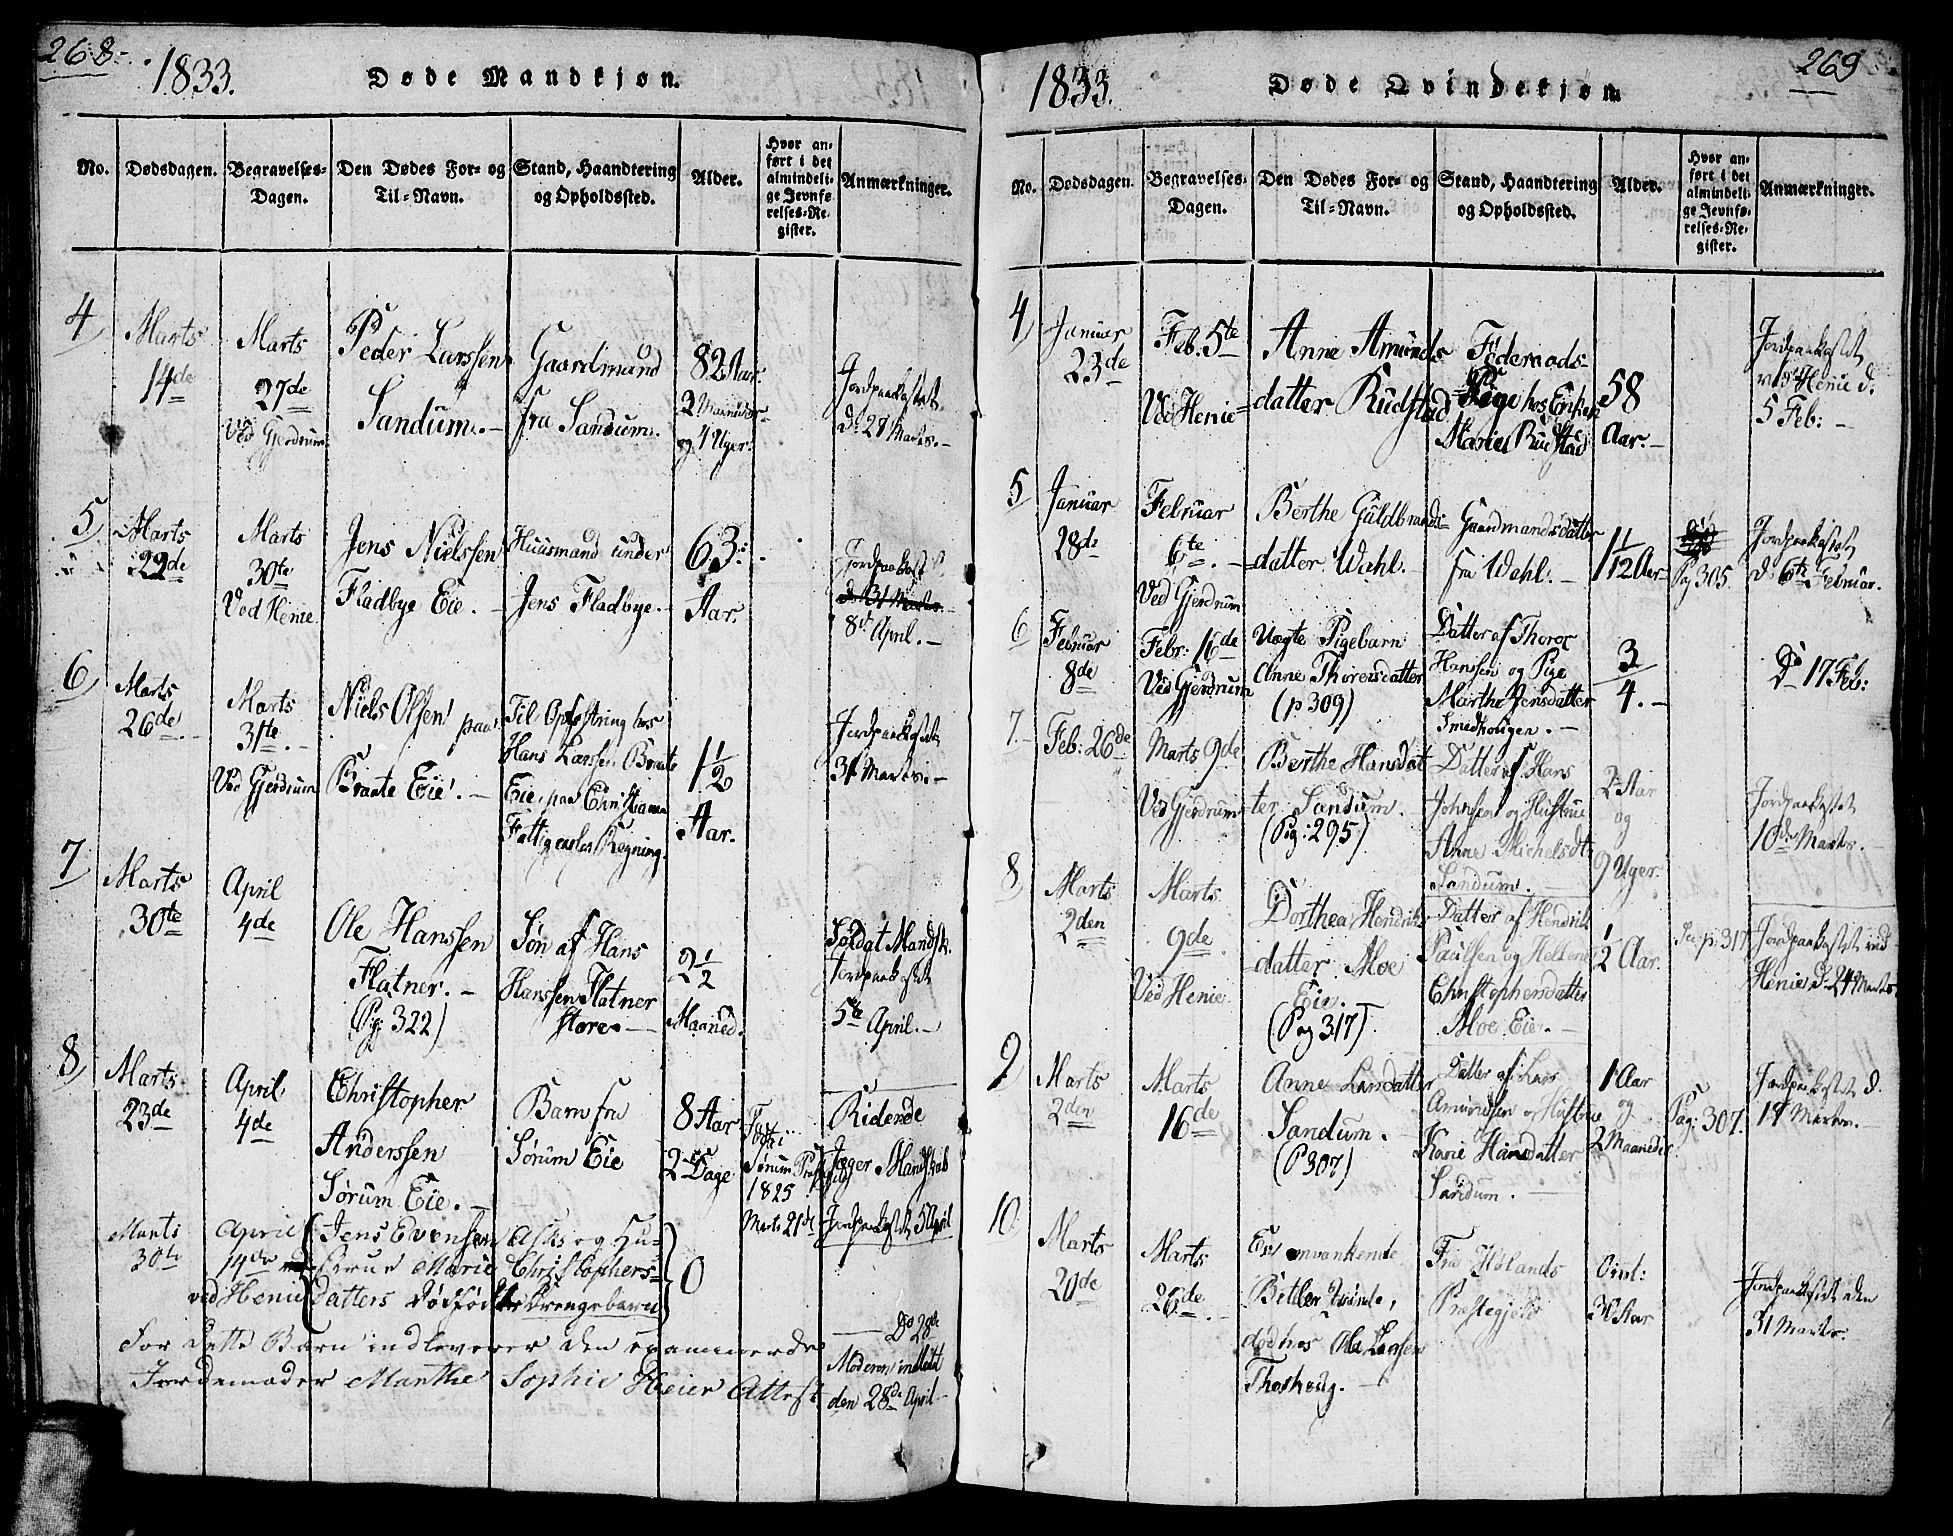 268.
1833. Døde Mandkjøn.
No. Dødsdagen. Begravelses-Dagen. Den Dødes For- og Til-Navn. Stand, Haandtering og Opholdssted. Alder. Hvor anført i det almindelige Jevnførelses-Register. Anmærkninger.
4
Marts
14de
Marts
27de
Ved Gjerdrum
Peder Larssen
Sandum.-
Gaardmand
fra Sandum.
82 Aar.
2 Maaneder
og 4 Uger.
Jordpaakastet
d. 28 Marts.-
5
Marts
22de
Marts
30te
Ved Henie
Jens Nielssen
Fladbye Eie.-
Huusmand under
Jens Fladbye.-
63.
Aar.
Jordpaakastet
d. 31 Marts.
8de April.-
6
Marts
26de.
Marts
31te.
Ved Gjerdrum
Niels Olsen paa
Braate Eie.-
Til Opfostring hos
Hans Larssen Braate
Eie, paa Christiania
Fattigcasses Regning.
1 1/2
Aar.
Jordpaakastet
31 Marts.-
7
Marts
30te
April
4de
Ole Hanssen
Flatner.-
(Pg. 322)
Søn af Hans
Hanssen Flatner
store.-
2 1/2
Maaned.
Soldat Mandsk.
Jordpaakastet
5te April.-
8
Marts
23de
April
4de
Christopher
Anderssen
Sørum Eie.-
Barn fra
Sørum Eie
8 Aar
2 Dage
Sørum
1825
Marts 21de
Ridende
Jæger Mandskab
Jordpaakastet 5 April
Marts
30te
April
14de
ved Henie
Jens Evensen
Marie
Datters Dødfødte
Asks og Hu-
Christophers-
Drengebarn
0
For dette Barn indleverer den examinerede
Jordemoder Marthe Sophie Heier Attest
Do 28de
Moderen indledt
den 28de April
269
1833. Døde Qvindekjøn.
No. Dødsdagen. Begravelses-Dagen. Den Dødes For- og Til-Navn. Stand, Haandtering og Opholdssted. Alder. Hvor anført i det almindelige Jevnførelses-Register. Anmærkninger.
4
Januar
23de
Feb. 5te
Ved Henie
Anne Amunds-
datter Rudstad
Føderaads-
Pige hos Enken
Marie Rudstad
58
Aar.-
Jordpaakastet
ved Henie d.
5 Feb:-
5
Januar
28de
Februar
6te.-
Ved Gjerdrum
Berthe Guldbrands-
datter Wahl.-
Gaardmandsdatter
fra Wahl.-
1 1/12 Aar
Pag 305.
Jordpaakastet
d. 6te Februar.
6
Februar
8de
Febr: 16de
Ved Gjerdrum
Uægte Pigebarn
Anne Thorersdatter
(p 309)
Datter af Thorer
Hanssen og Pige
Marthe Jensdatter
Smedhougen.-
3/4.-
Do 17 Feb:
7.
Feb: 26de
Marts 9de
Ved Gjerdrum
Berthe Hansdat
ter Sandum.
(Pag: 295)
Datter af Hans
Johnsen og Hustrue
Anne Michelsdtr
Sandum.-
2 Aar
og
9 Uger.
Jordpaakastet
10de Marts.-
8
Marts
2den
Marts
9de
Ved Henie.
Dorthea Hendriks-
datter Moe
Eie.-
(Pag 317)
Datter af Hendrik
Paulsen og Hellene
Christophersdatter
Moe Eie.-
1/2 Aar.
p. 317
Jordpaakastet ved
Henie d. 24 Marts
9
Marts
2den
Marts
16de
Anne Larsdatter
Sandum.-
(P 307)
Datter af Lars
Amundsen og Hustrue
Karie Hansdatter
Sandum.-
1 Aar
og
2 Maaneder
Pag: 307.
Jordpaakastet d.
17 Marts.-
10
Marts
20de
Marts
26de.-
En omvankende
Betler Qvinde,
død hos Ole Larsen
Thoshoug.-
Fra Hølands
Præstegjeld
Omt:
70 Aar
Jordpaakastet den
31 Marts.